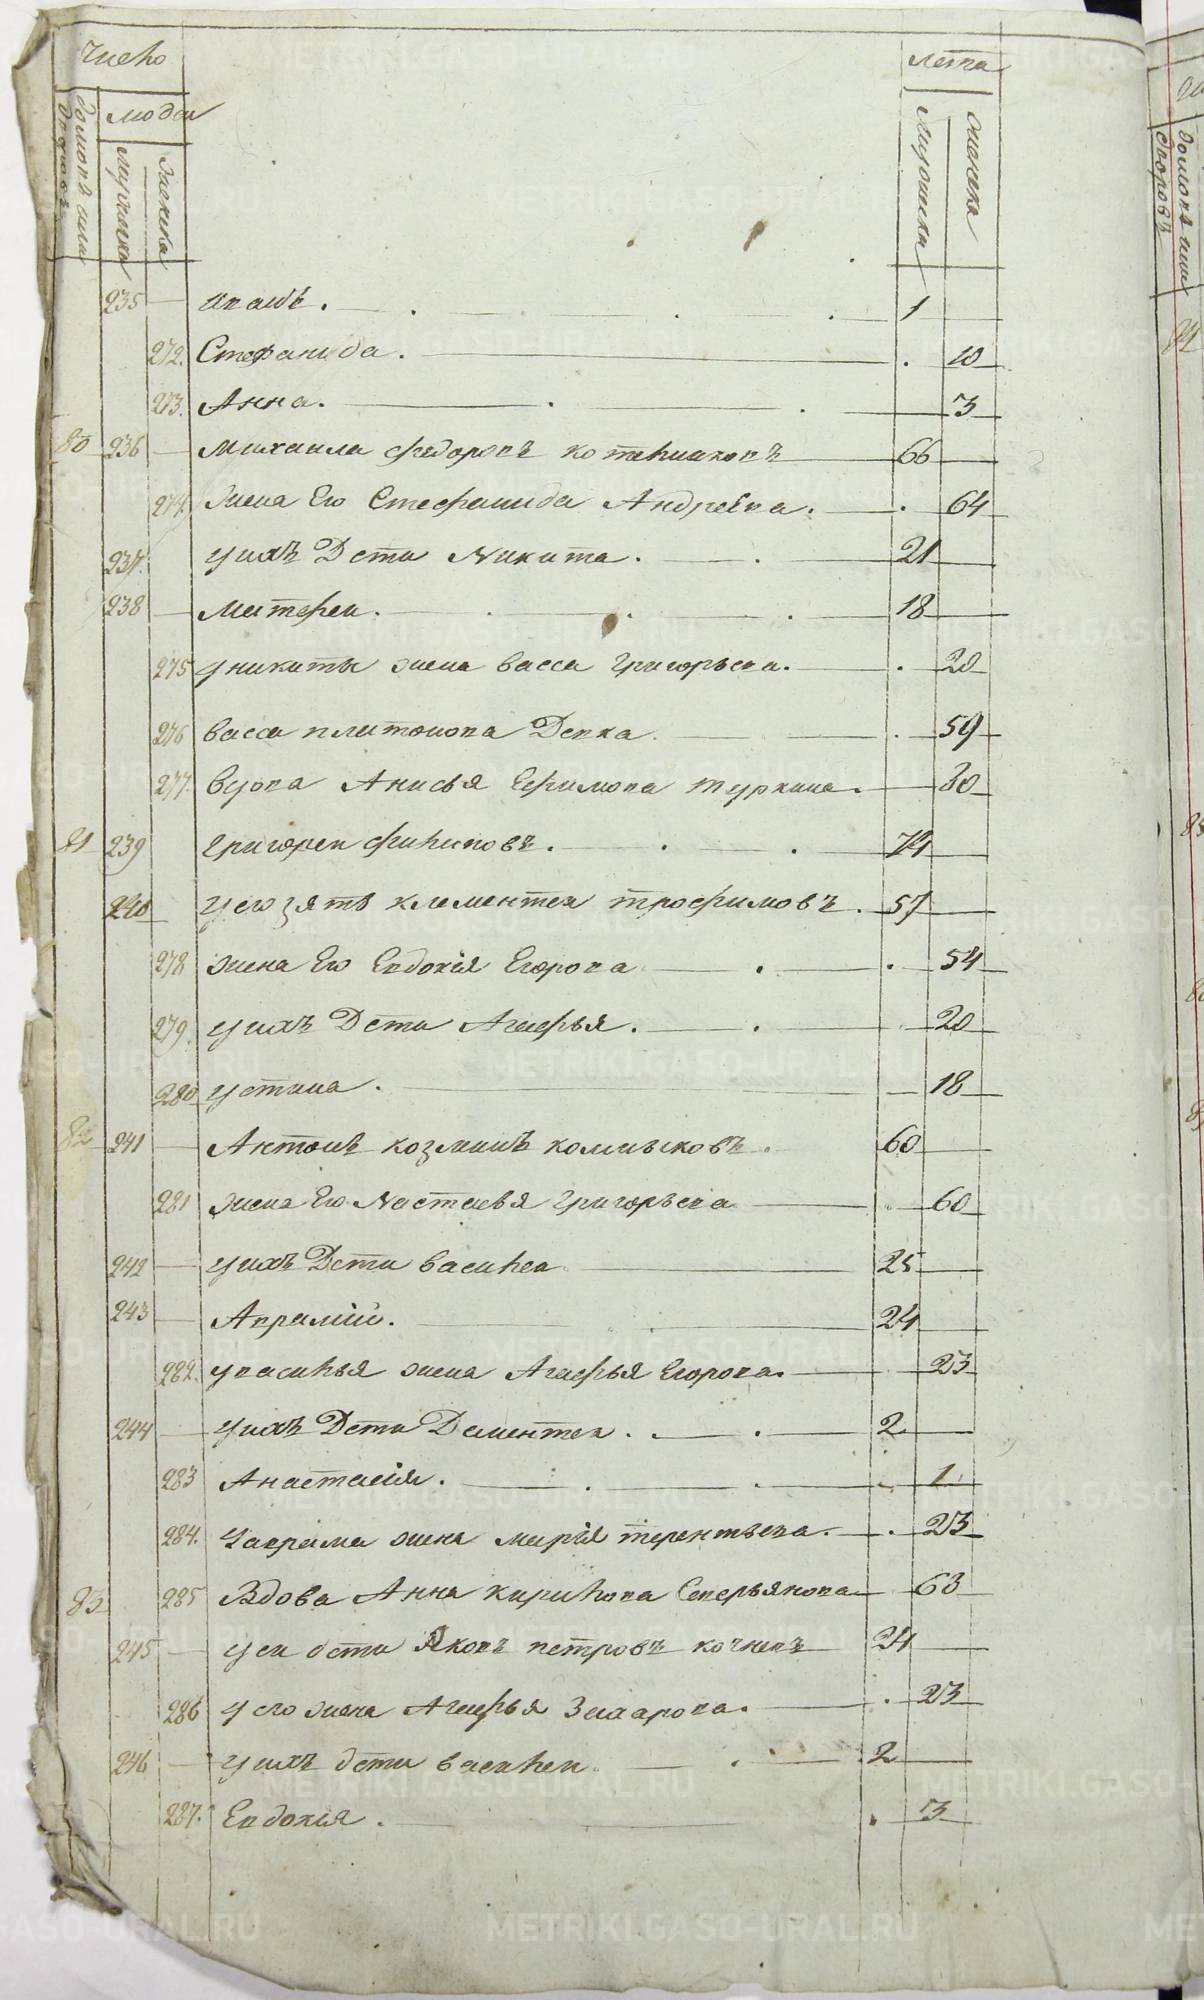 Число
лета
домовъ или дворовъ
людеи
мужеска
женска
мужеска
женска
235 Иванъ. 1
272. Стефанида. 10
273. Анна. 3
80 236 Михаила Федоровъ Котельниковъ 66
274 Жена Его Стефанида Андреева. 64
237. у ихъ Дети Никита. 21
238 Матфеи. 18
275 у Никиты жена Васса Григорьева. 20
276 Васса Платонова Девка. 59
277. Вдова Анисья Ефимова Туркина. 30
81 239 Григореи Филиповъ. 74
240 у его зять Клементеи Трофимовъ. 57
278 жена Его Евдокія Егорова 54
279. у ихъ Дети Агафья. 20
280 Устина. 18
82 241 Антонъ Козминъ Колмыковъ. 60
281 жена Его Настасья Григорьева 60
242 у ихъ Дети Василеи 25
243 Аврамій. 24
282. у Василья жена Агафья Егорова. 23
244 у ихъ Дети Дементеи. 2
283 Анастасія. 1
284. У Аврама жена Марія Терентьева. 23
83 285 Вдова Анна Карилова Северьянова 63
245 у еи дети Яковъ Петровъ Кочневъ 24
286 у его жена Агафья Захарова. 23
246 у ихъ дети Василеи 2
287. Евдокія. 3
домовъ или дворовъ
82
METRIKI.GASO-URAL.RU